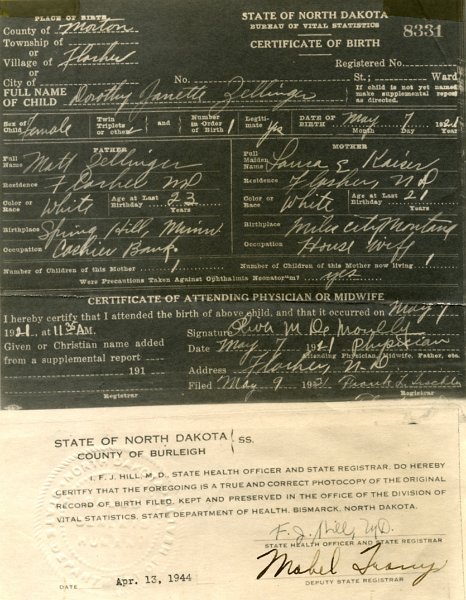 PLACE OF BIRTH
County of Morton
Township of
or
Village of Flasher
or
City of
STATE OF NORTH DAKOTA
BUREAU OF VITAL STATISTICS
CERTIFICATE OF BIRTH
8331
Registered No.
No. St.; Ward
FULL NAME OF CHILD Dorothy Janette Zellinger
If child is not yet named make supplemental report as directed.
Sex of Child Female
Twin Triplets or other
and
Number in Order of Birth 1
Legitimate yes
DATE OF BIRTH May 7, 1921
Month Day Year
FATHER
Full Name Matt Zellinger
Residence Flasher ND
Color or Race White
Age at Last Birthday
Years
Birthplace Spring Hill, Minn
Occupation Cashier Bank
MOTHER
Full Maiden Name Laura E Kaiser
Residence Flasher ND
Color or Race White
Age at Last Birthday 21
Years
Birthplace Miles City Montana
Occupation House Wife
Number of Children of this Mother 1
Number of Children of this Mother now living 1
Were Precautions Taken Against Ophthalmia Neonatorum? yes
CERTIFICATE OF ATTENDING PHYSICIAN OR MIDWIFE
I hereby certify that I attended the birth of above child, and that it occurred on May 7
1921, at 11 AM.
Given or Christian name added
from a supplemental report
191
Registrar
Signature M De Moully
Date May 7 1921 Physician
Attending Physician, Midwife, Father, etc.
Address Flasher, N.D
Filed May 9 1921 Frank L.
Registrar
STATE OF NORTH DAKOTA
COUNTY OF BURLEIGH
SS.
I, F. J. HILL, M. D., STATE HEALTH OFFICER AND STATE REGISTRAR, DO HEREBY
CERITFY THAT THE FOREGOING IS A TRUE AND CORRECT PHOTOCOPY OF THE ORIGINAL
RECORD OF BIRTH FILED, KEPT AND PRESERVED IN THE OFFICE OF THE DIVISION OF
VITAL STATISTICS, STATE DEPARTMENT OF HEALTH, BISMARCK, NORTH DAKOTA.
F. J. Hill, M.D.
STATE HEALTH OFFICER AND STATE REGISTRAR
Mabel
DEPUTY STATE REGISTRAR
DATE Apr. 13, 1944